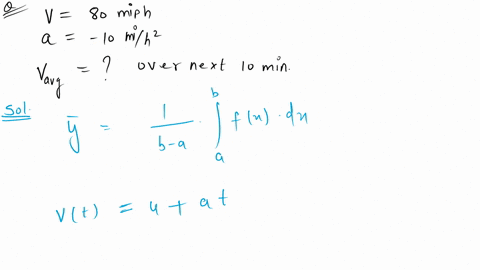 Q V = 80 miph
a = -10 mi/h²
Vavg = ? over next 10 min.
Sol. ȳ = 1/(b-a) · ∫_a^b f(x) · dx
V(t) = u + at